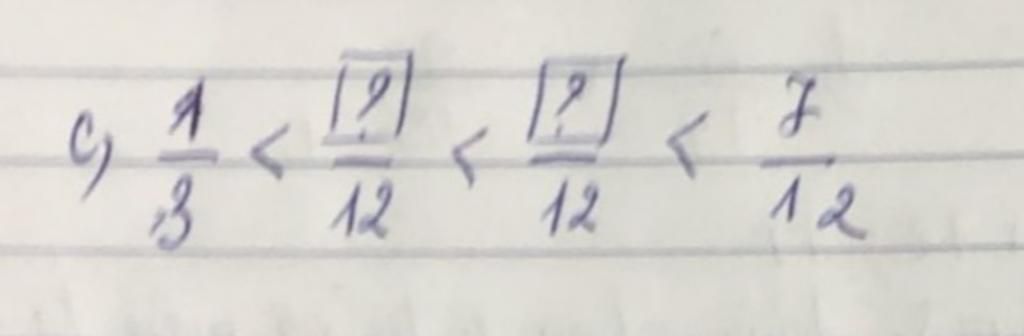 c, 1/3 < ?/12 < ?/12 < 7/12